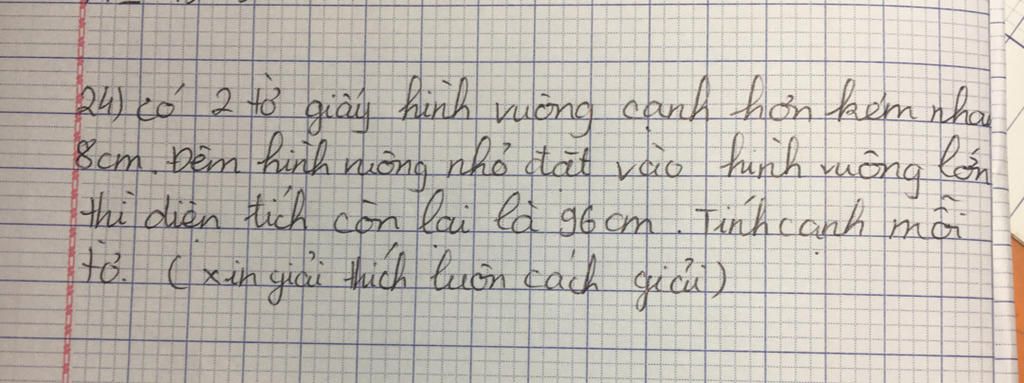 24) có 2 tờ giấy hình vuông cạnh hơn kém nha
8cm. Đêm hình vuông nhỏ đặt vào hình vuông lớn
thì diện tích còn lại là 96 cm. Tính cạnh mỗi
tờ. (xin giải thích luôn cách giải)